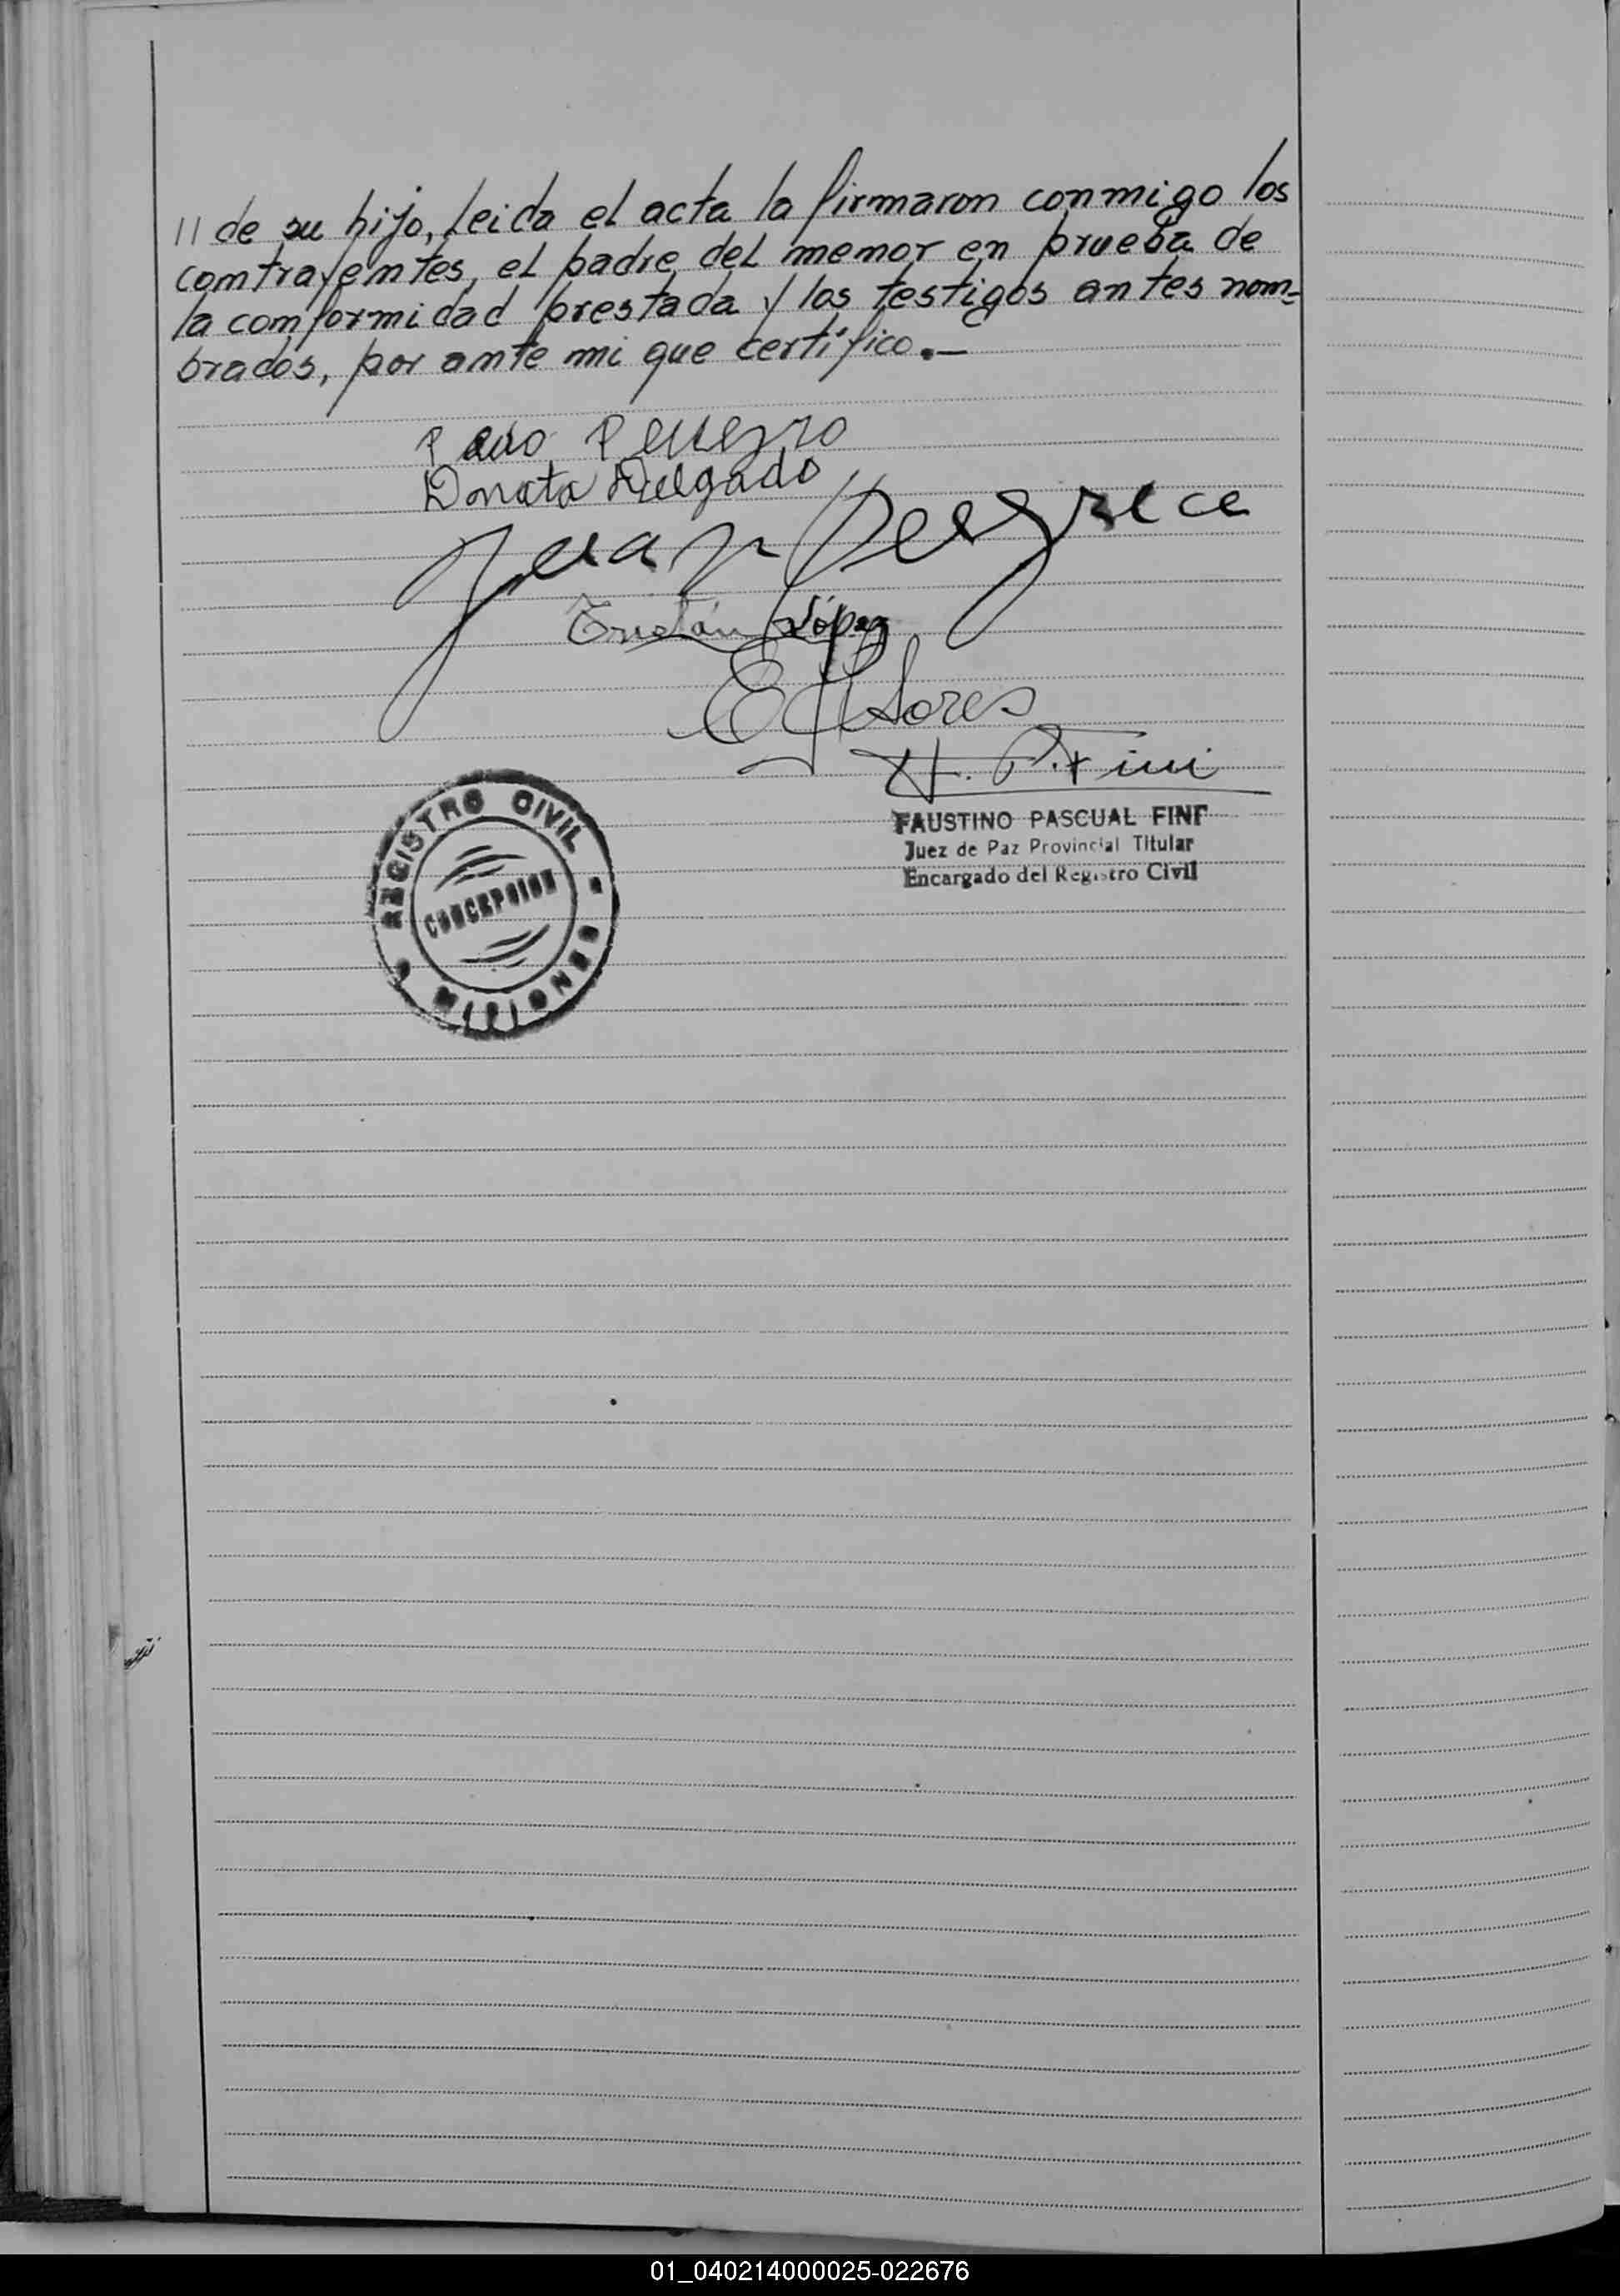 // de su hijo, leida el acta la firmaron conmigo los
contrayentes, el padre del menor en prueba de
la conformidad prestada y los testigos antes nom=
brados, por ante mi que certifico.—
Donata Delgado
Juan
Tristán López
E Flores
FAUSTINO PASCUAL FINI
Juez de Paz Provincial Titular
Encargado del Registro Civil
REGISTRO CIVIL
CONCEPCION
MISIONES
01_040214000025-022676